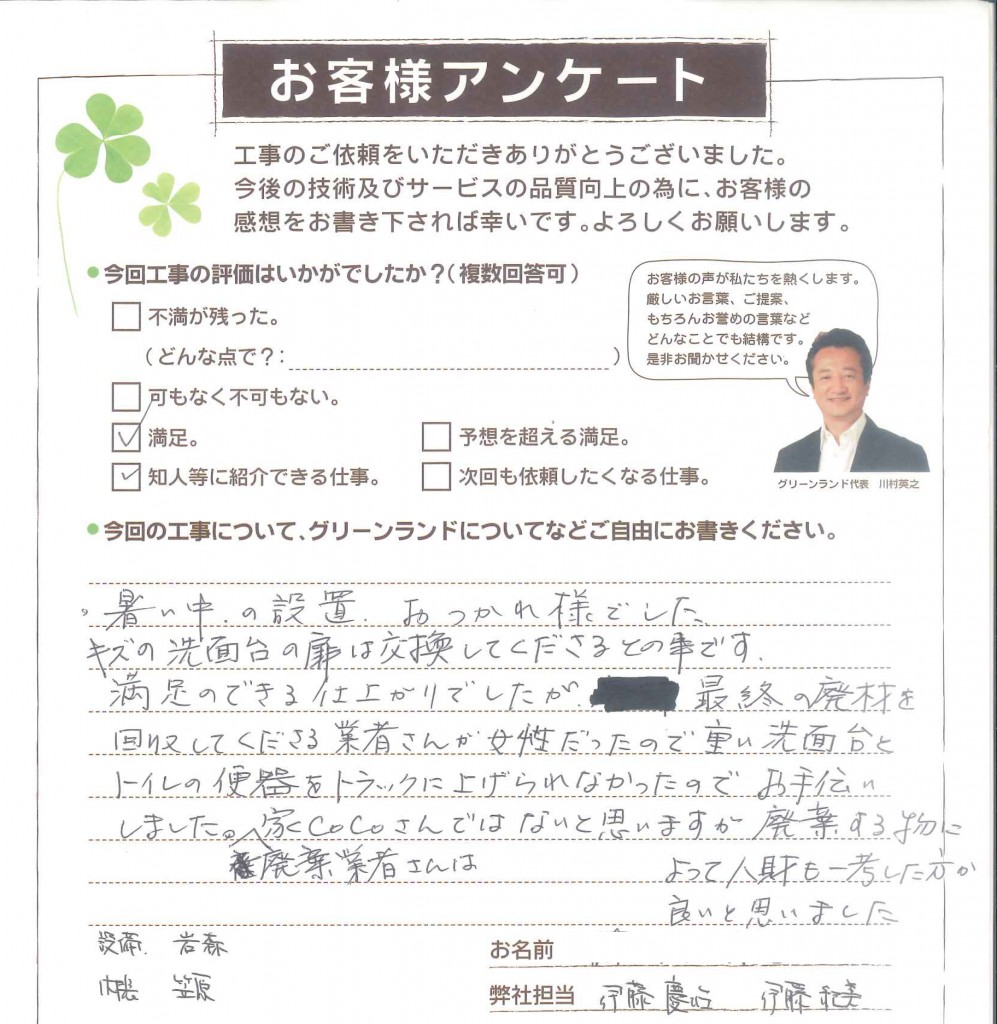 お客様アンケート
工事のご依頼をいただきありがとうございました。
今後の技術及びサービスの品質向上の為に、お客様の
感想をお書き下されば幸いです。よろしくお願いします。
今回工事の評価はいかがでしたか？（複数回答可）
不満が残った。
（どんな点で？：　）
可もなく不可もない。
満足。
予想を超える満足。
知人等に紹介できる仕事。
次回も依頼したくなる仕事。
お客様の声が私たちを熱くします。
厳しいお言葉、ご提案、
もちろんお誉めの言葉など
どんなことでも結構です。
是非お聞かせください。
グリーンランド代表　川村英之
今回の工事について、グリーンランドについてなどご自由にお書きください。
暑い中の設置おつかれ様でした
キズの洗面台の扉は交換してくださるとの事です.
満足のできる仕上がりでしたが 最終の廃材を
回収してくださる業者さんが女性だったので重い洗面台と
トイレの便器をトラックに上げられなかったのでお手伝い
しました。家CoCoさんではないと思いますが廃棄する物に
廃棄業者さんは
よって人財も一考した方が
良いと思いました
設備 岩森
笠原
お名前
弊社担当 伊藤 伊藤